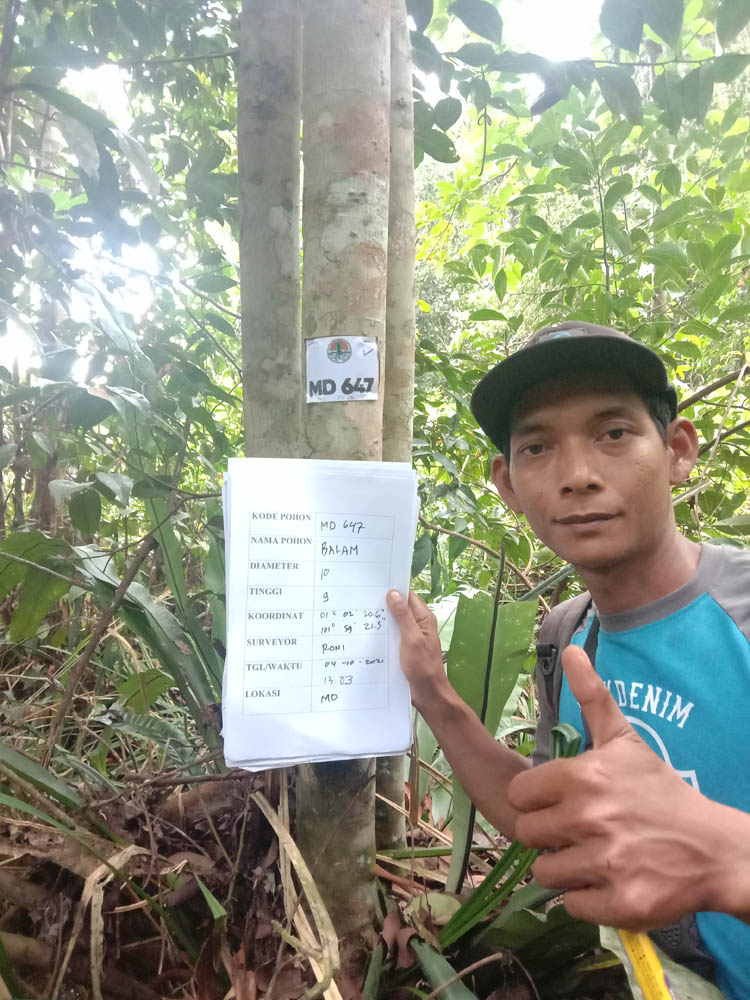 MD 647
KODE POHON MD 647
NAMA POHON BALAM
DIAMETER 10
TINGGI 9
KOORDINAT 01° 02' 20.6"
101° 59' 21.3"
SURVEYOR RONI
TGL/WAKTU 04-10-2021
13.03
LOKASI MD
DENIM